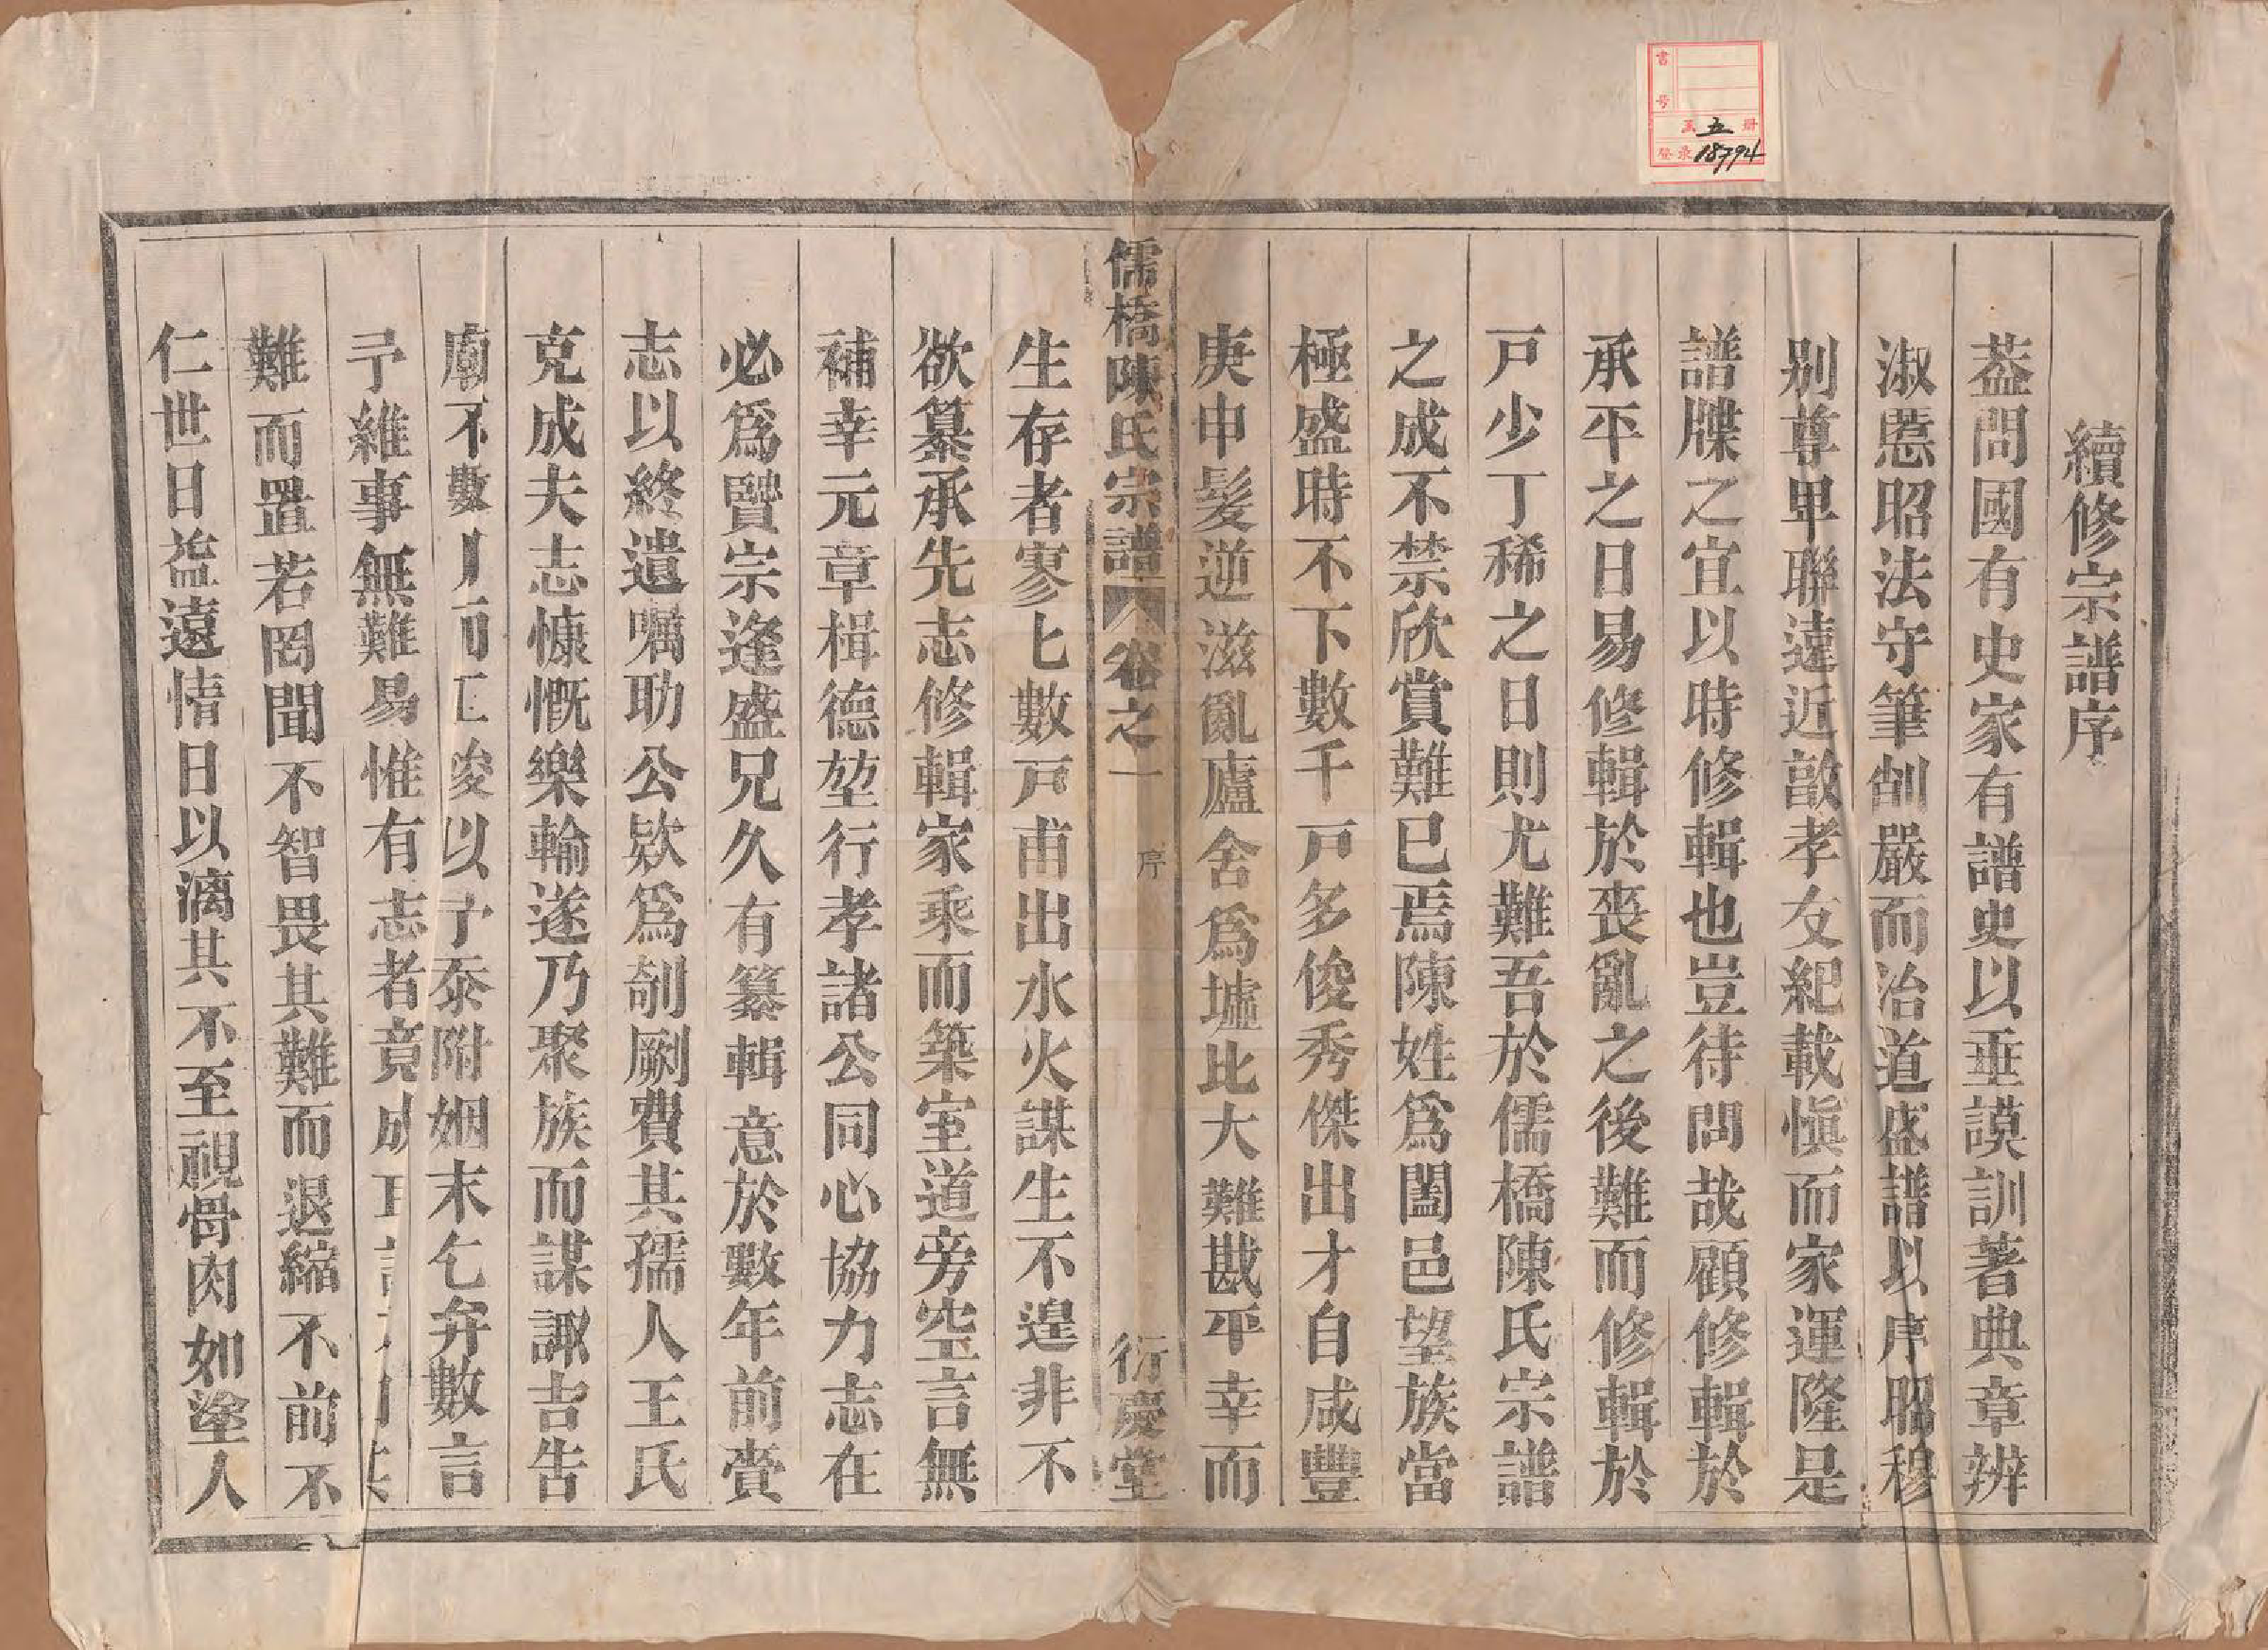 續修宗譜序
葢問國有史家有譜史以垂謨訓著典章辨
淑慝昭法守筆削嚴而治道盛譜以序昭穆
别尊卑聯遠近敦孝友紀載愼而家運隆是
譜牒之宜以時修輯也豈待問哉顧修輯於
承平之日易修輯於喪亂之後難而修輯於
戸少丁稀之日則尤難吾於儒橋陳氏宗譜
之成不禁欣賞難已焉陳姓爲闔邑望族當
極盛時不下數千戸多俊秀傑出才自咸豐
庚申髮逆滋亂廬舍爲墟比大難戡平幸而
儒橋陳氏宗譜 卷之一 序 衍慶堂
生存者寥匕數戸甫出水火謀生不遑非不
欲纂承先志修輯家乘而築室道旁空言無
補幸元章楫德堃行孝諸公同心協力志在
必爲賢宗逢盛兄久有纂輯意於數年前賫
志以終遺囑助公欵爲剞劂費其孺人王氏
克成夫志慷慨樂輸遂乃聚族而謀諏吉告
廟不數月而工竣以予泰附姻末乞弁數言
予維事無難易惟有志者竟成
難而置若罔聞不智畏其難而退縮不前不
仁世日益遠情日以漓其不至視骨肉如塗人
書号
至五册
登录18794